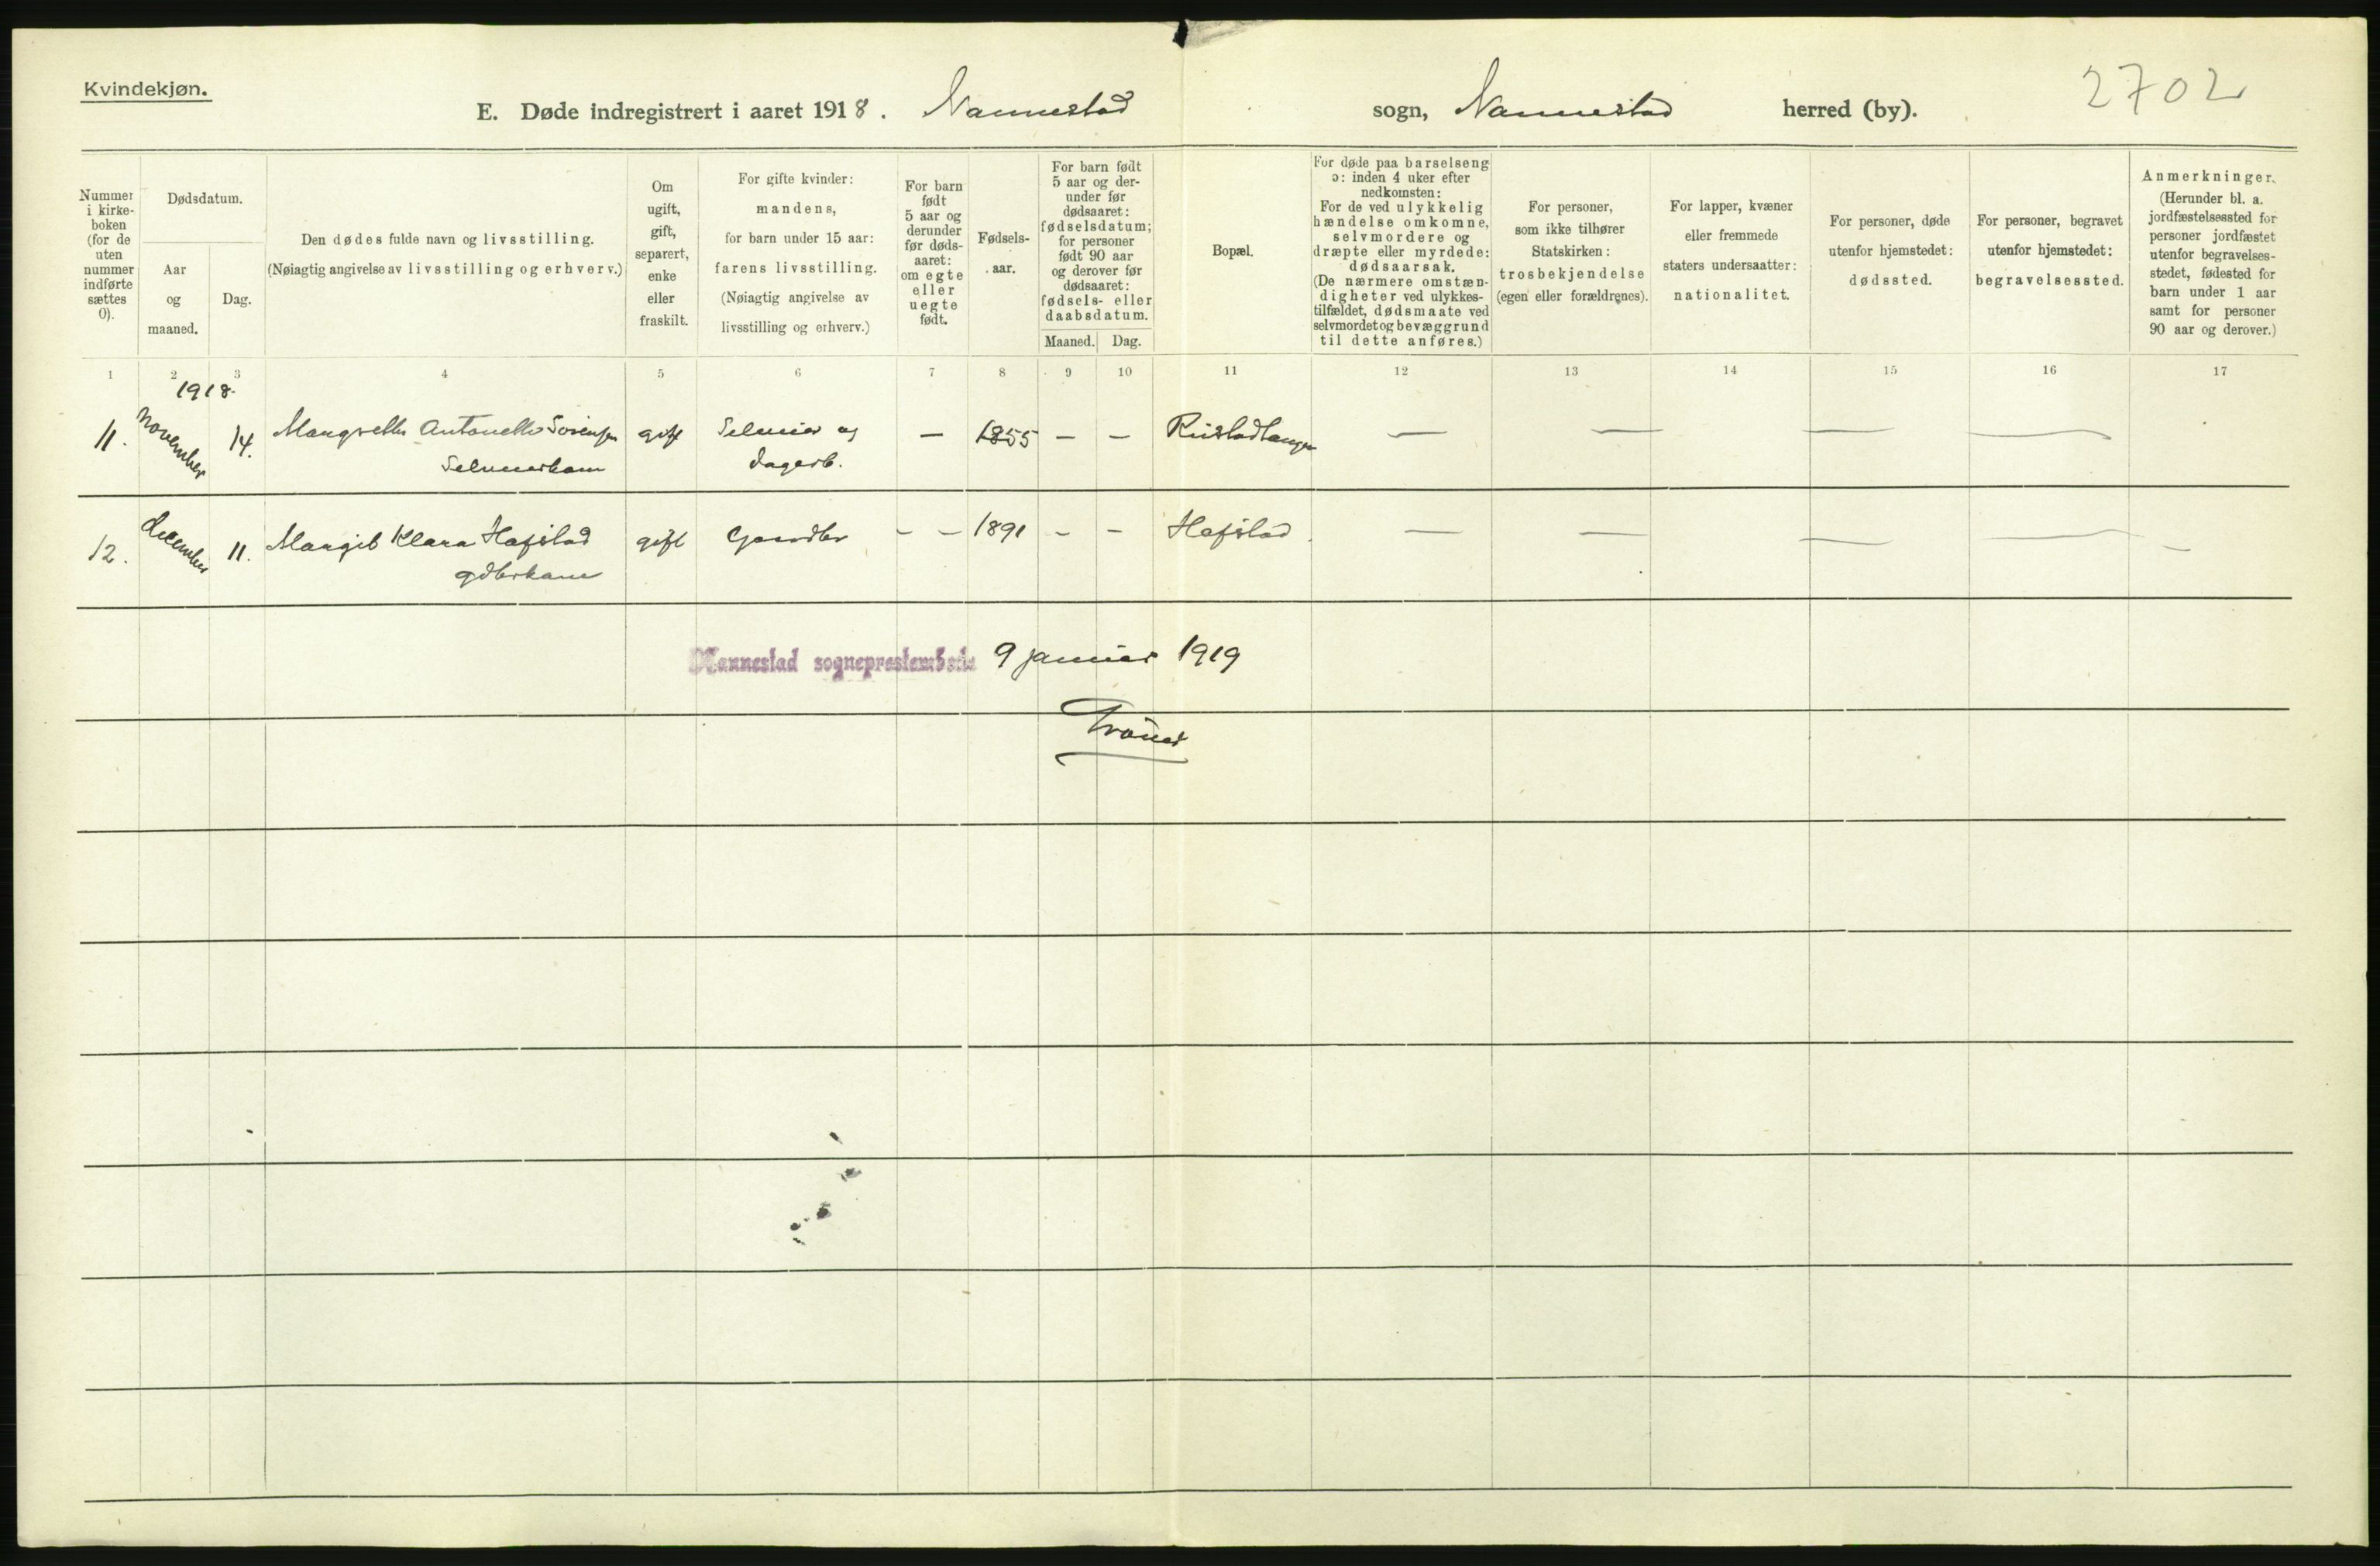 Kvindekjøn.
E. Døde indregistrert i aaret 1918. Nannestad sogn, Nannestad herred (by).
2702
Nummer i kirke-
boken
(for de
uten
nummer
indførte
sættes
0).
Dødsdatum.
Aar
og
maaned.
Dag.
Den dødes fulde navn og livsstilling.
(Nøiagtig angivelse av livsstilling og erhverv.)
Om
ugift,
gift,
separert,
enke
eller
fraskilt.
For gifte kvinder:
mandens,
for barn under 15 aar:
farens livsstilling.
(Nøiagtig angivelse av
livsstilling og erhverv.)
For barn
født
5 aar og
derunder
før døds-
aaret:
om egte
eller
uegte
født.
Fødsels-
aar.
For barn født
5 aar og der-
under før
dødsaaret:
fødselsdatum;
for personer
født 90 aar
og derover før
dødsaaret:
fødsels- eller
daabsdatum.
Maaned. Dag.
Bopæl.
For døde paa barselseng
ɔ: inden 4 uker efter
nedkomsten:
For de ved ulykkelig
hændelse omkomne,
selvmordere og
dræpte eller myrdede:
dødsaarsak.
(De nærmere omstæn-
digheter ved ulykkes-
tilfældet, dødsmaate ved
selvmordet og bevæggrund
til dette anføres.)
For personer,
som ikke tilhører
Statskirken:
trosbekjendelse
(egen eller forældrenes).
For lapper, kvæner
eller fremmede
staters undersaatter:
nationalitet.
For personer, døde
utenfor hjemstedet:
dødssted.
For personer, begravet
utenfor hjemstedet:
begravelsessted.
Anmerkninger.
(Herunder bl. a.
jordfæstelsessted for
personer jordfæstet
utenfor begravelses-
stedet, fødested for
barn under 1 aar
samt for personer
90 aar og derover.)
1 2 3 4 5 6 7 8 9 10 11 12 13 14 15 16 17
1918.
11. November 14. Margrethe Antonette Sørensen gift Selveier og — 1855 — — — — — —
dagarb.
12. December 11. Margit Klara Hafstad gift Gaardbr - - 1891 - - Hafstad — — — — —
gdbrkone
Nannestad sogneprestembede 9 januar 1919